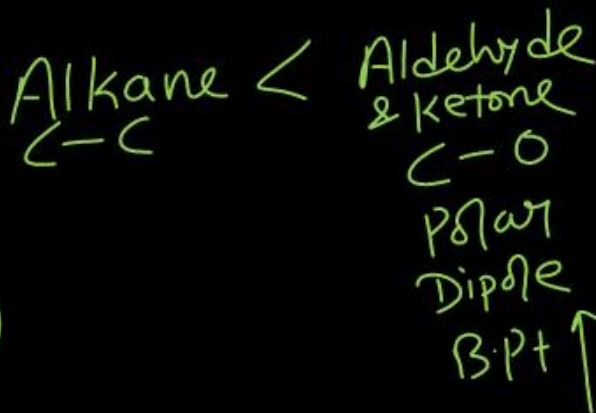 Alkane < Aldehyde
& Ketone
C-C
C-O
Polar
Dipole
B.Pt ↑